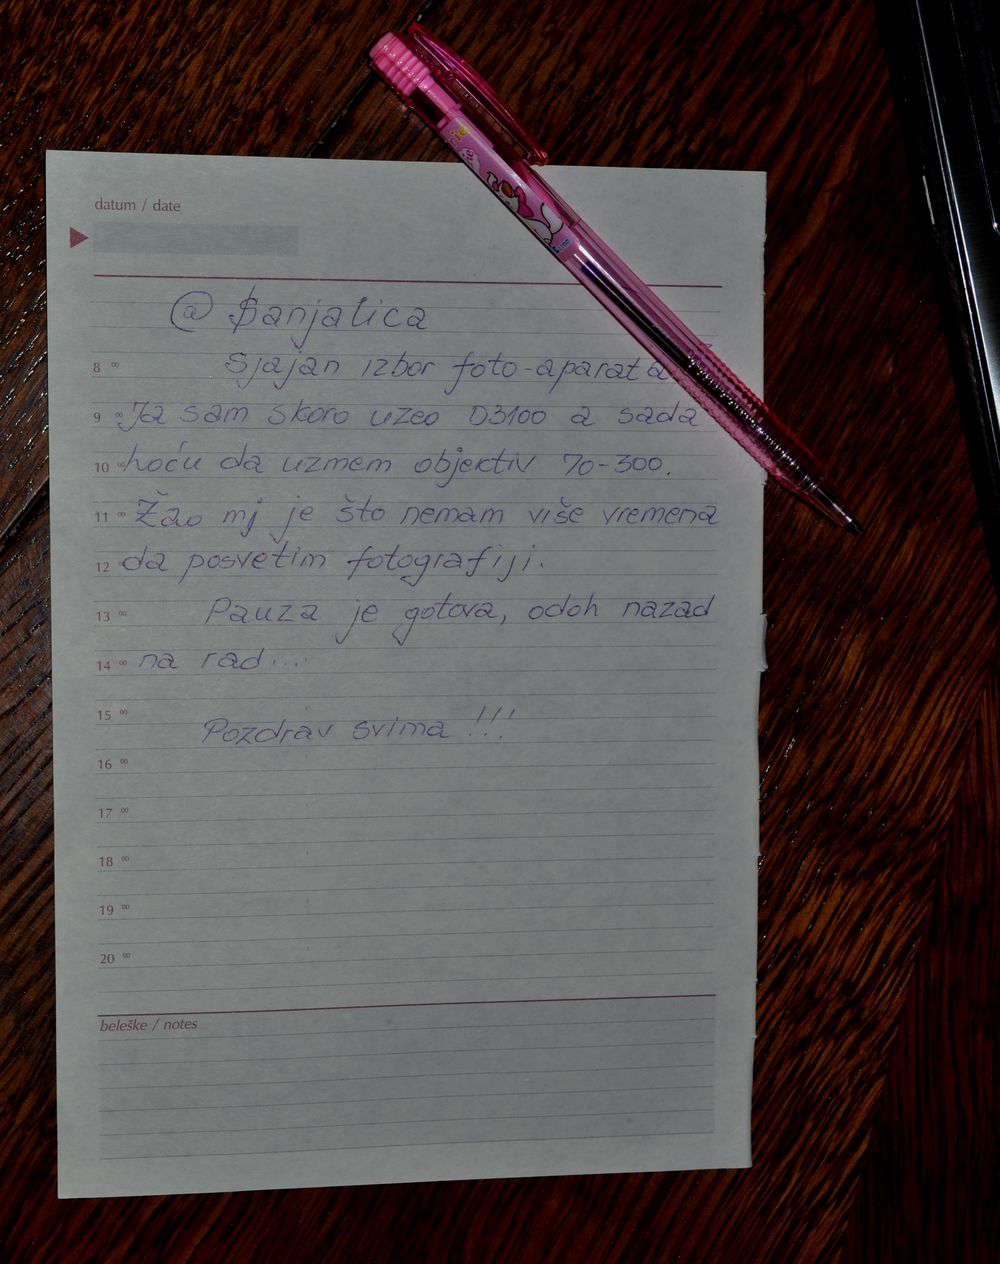 datum / date
@ Sanjalica
Sjajan izbor foto-aparata
8 00
Ja sam skoro uzeo D3100 a sada
9 00
hoću da uzmem objektiv 70-300.
10 00
Žao mj je što nemam više vremena
11 00
da posvetim fotografiji.
12 00
Pauza je gotova, odoh nazad
13 00
na rad...
14 00
15 00
Pozdrav svima !!!
16 00
17 00
18 00
19 00
20 00
beleške / notes